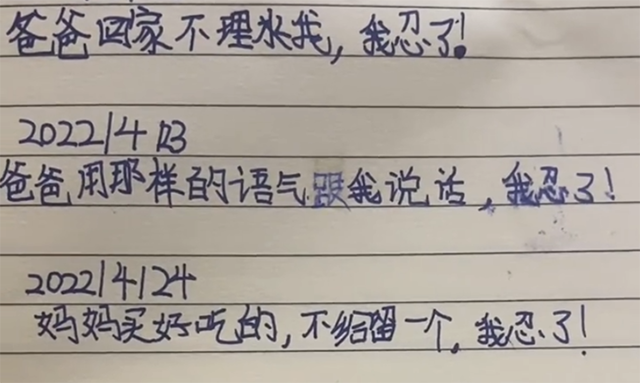 爸爸回家不理我,我忍了!
2022/4/23
爸爸用那样的语气跟我说话,我忍了!
2022/4/24
妈妈买好吃的,不给留一个,我忍了!